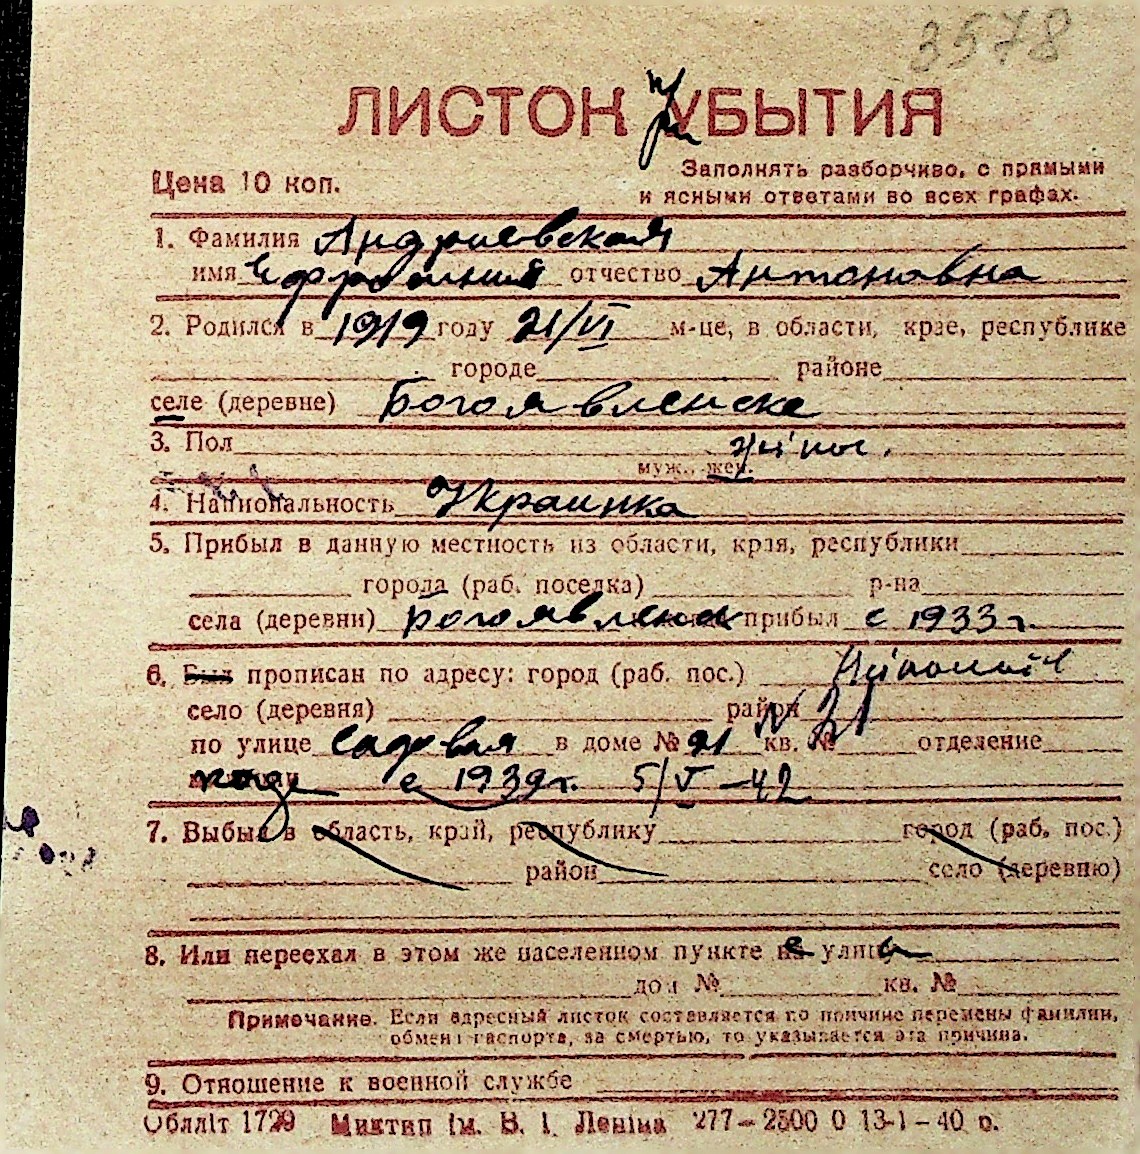 3578
ЛИСТОК при УБЫТИЯ
Цена 10 коп.
Заполнять разборчиво, с прямыми
и ясными ответами во всех графах.
1. Фамилия Андриевская
имя Ефросиния отчество Антоновна
2. Родился в 1919 году 21/VI м-це, в области, крае, республике
городе районе
селе (деревне) Богоявленске
3. Пол
муж., жен.
4. Национальность Украинка
5. Прибыл в данную местность из области, края, республики
города (раб. поселка) р-на
села (деревни) Богоявленск прибыл с 1933 г.
6. Был прописан по адресу: город (раб. пос.)
село (деревня) район
по улице Садовая в доме № 21 кв. № отделение
с 1939 г. 5/V-42
7. Выбыл в область, край, республику город (раб. пос.)
район село (деревню)
8. Или переехал в этом же населенном пункте на улицу
дом № кв. №
Примечание. Если адресный листок составляется по причине перемены фамилии,
обмена паспорта, за смертью, то указывается эта причина.
9. Отношение к военной службе
Обллiт 1729 Миктип iм. В. I. Ленiна 277-2500 0 13-1-40 р.